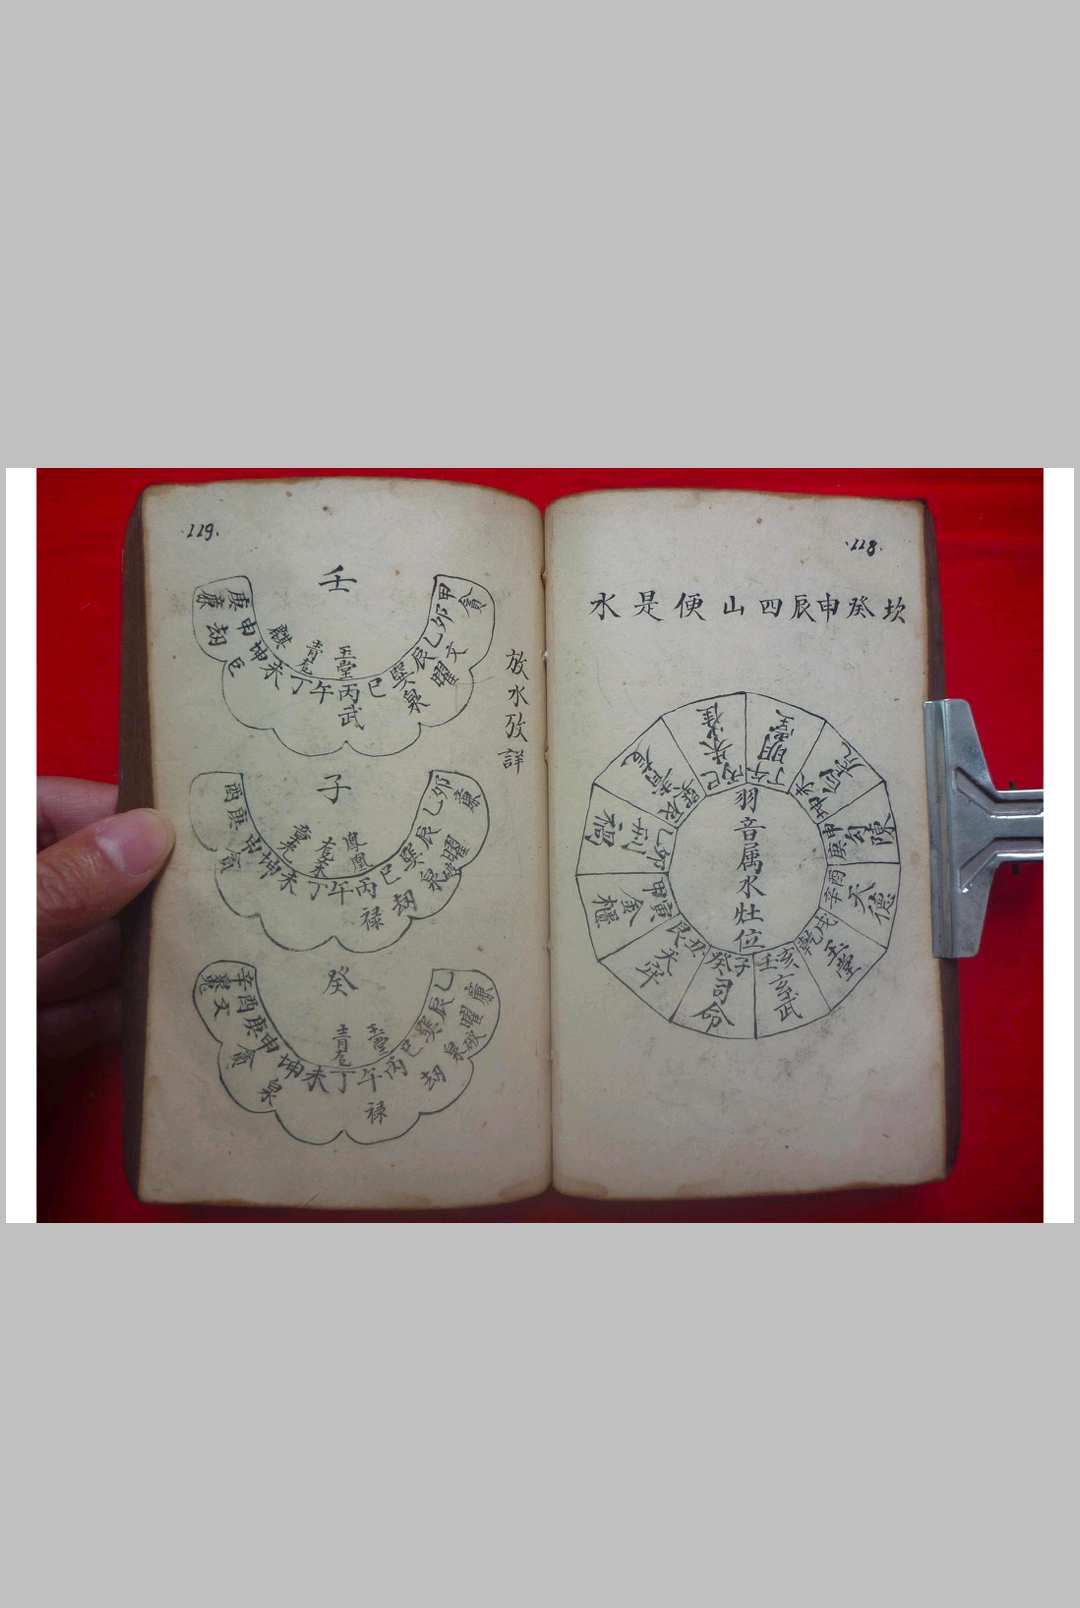 ·118·
坎癸申辰四山便是水
羽音属水灶位
丁午
明堂
坤未
庚申
勾陳
辛酉
天德
乾戌
玉堂
壬亥
玄武
癸子
司命
艮丑
天牢
甲寅
金櫃
乙卯
巽辰
丙巳
朱雀
·119·
放水攷詳
壬
甲 卯 乙 辰 巽 巳 丙 午 丁 未 坤 申 庚
貪
文
曜
泉
武
玉堂
麒
劫
廉
子
卯 乙 辰 巽 巳 丙 午 丁 未 坤 申 庚 酉
廉
曜
泉
劫
祿
鳳凰
癸
乙 辰 巽 巳 丙 午 丁 未 坤 申 庚 酉 辛
廉
曜
泉
劫
祿
玉堂
泉
貪
文